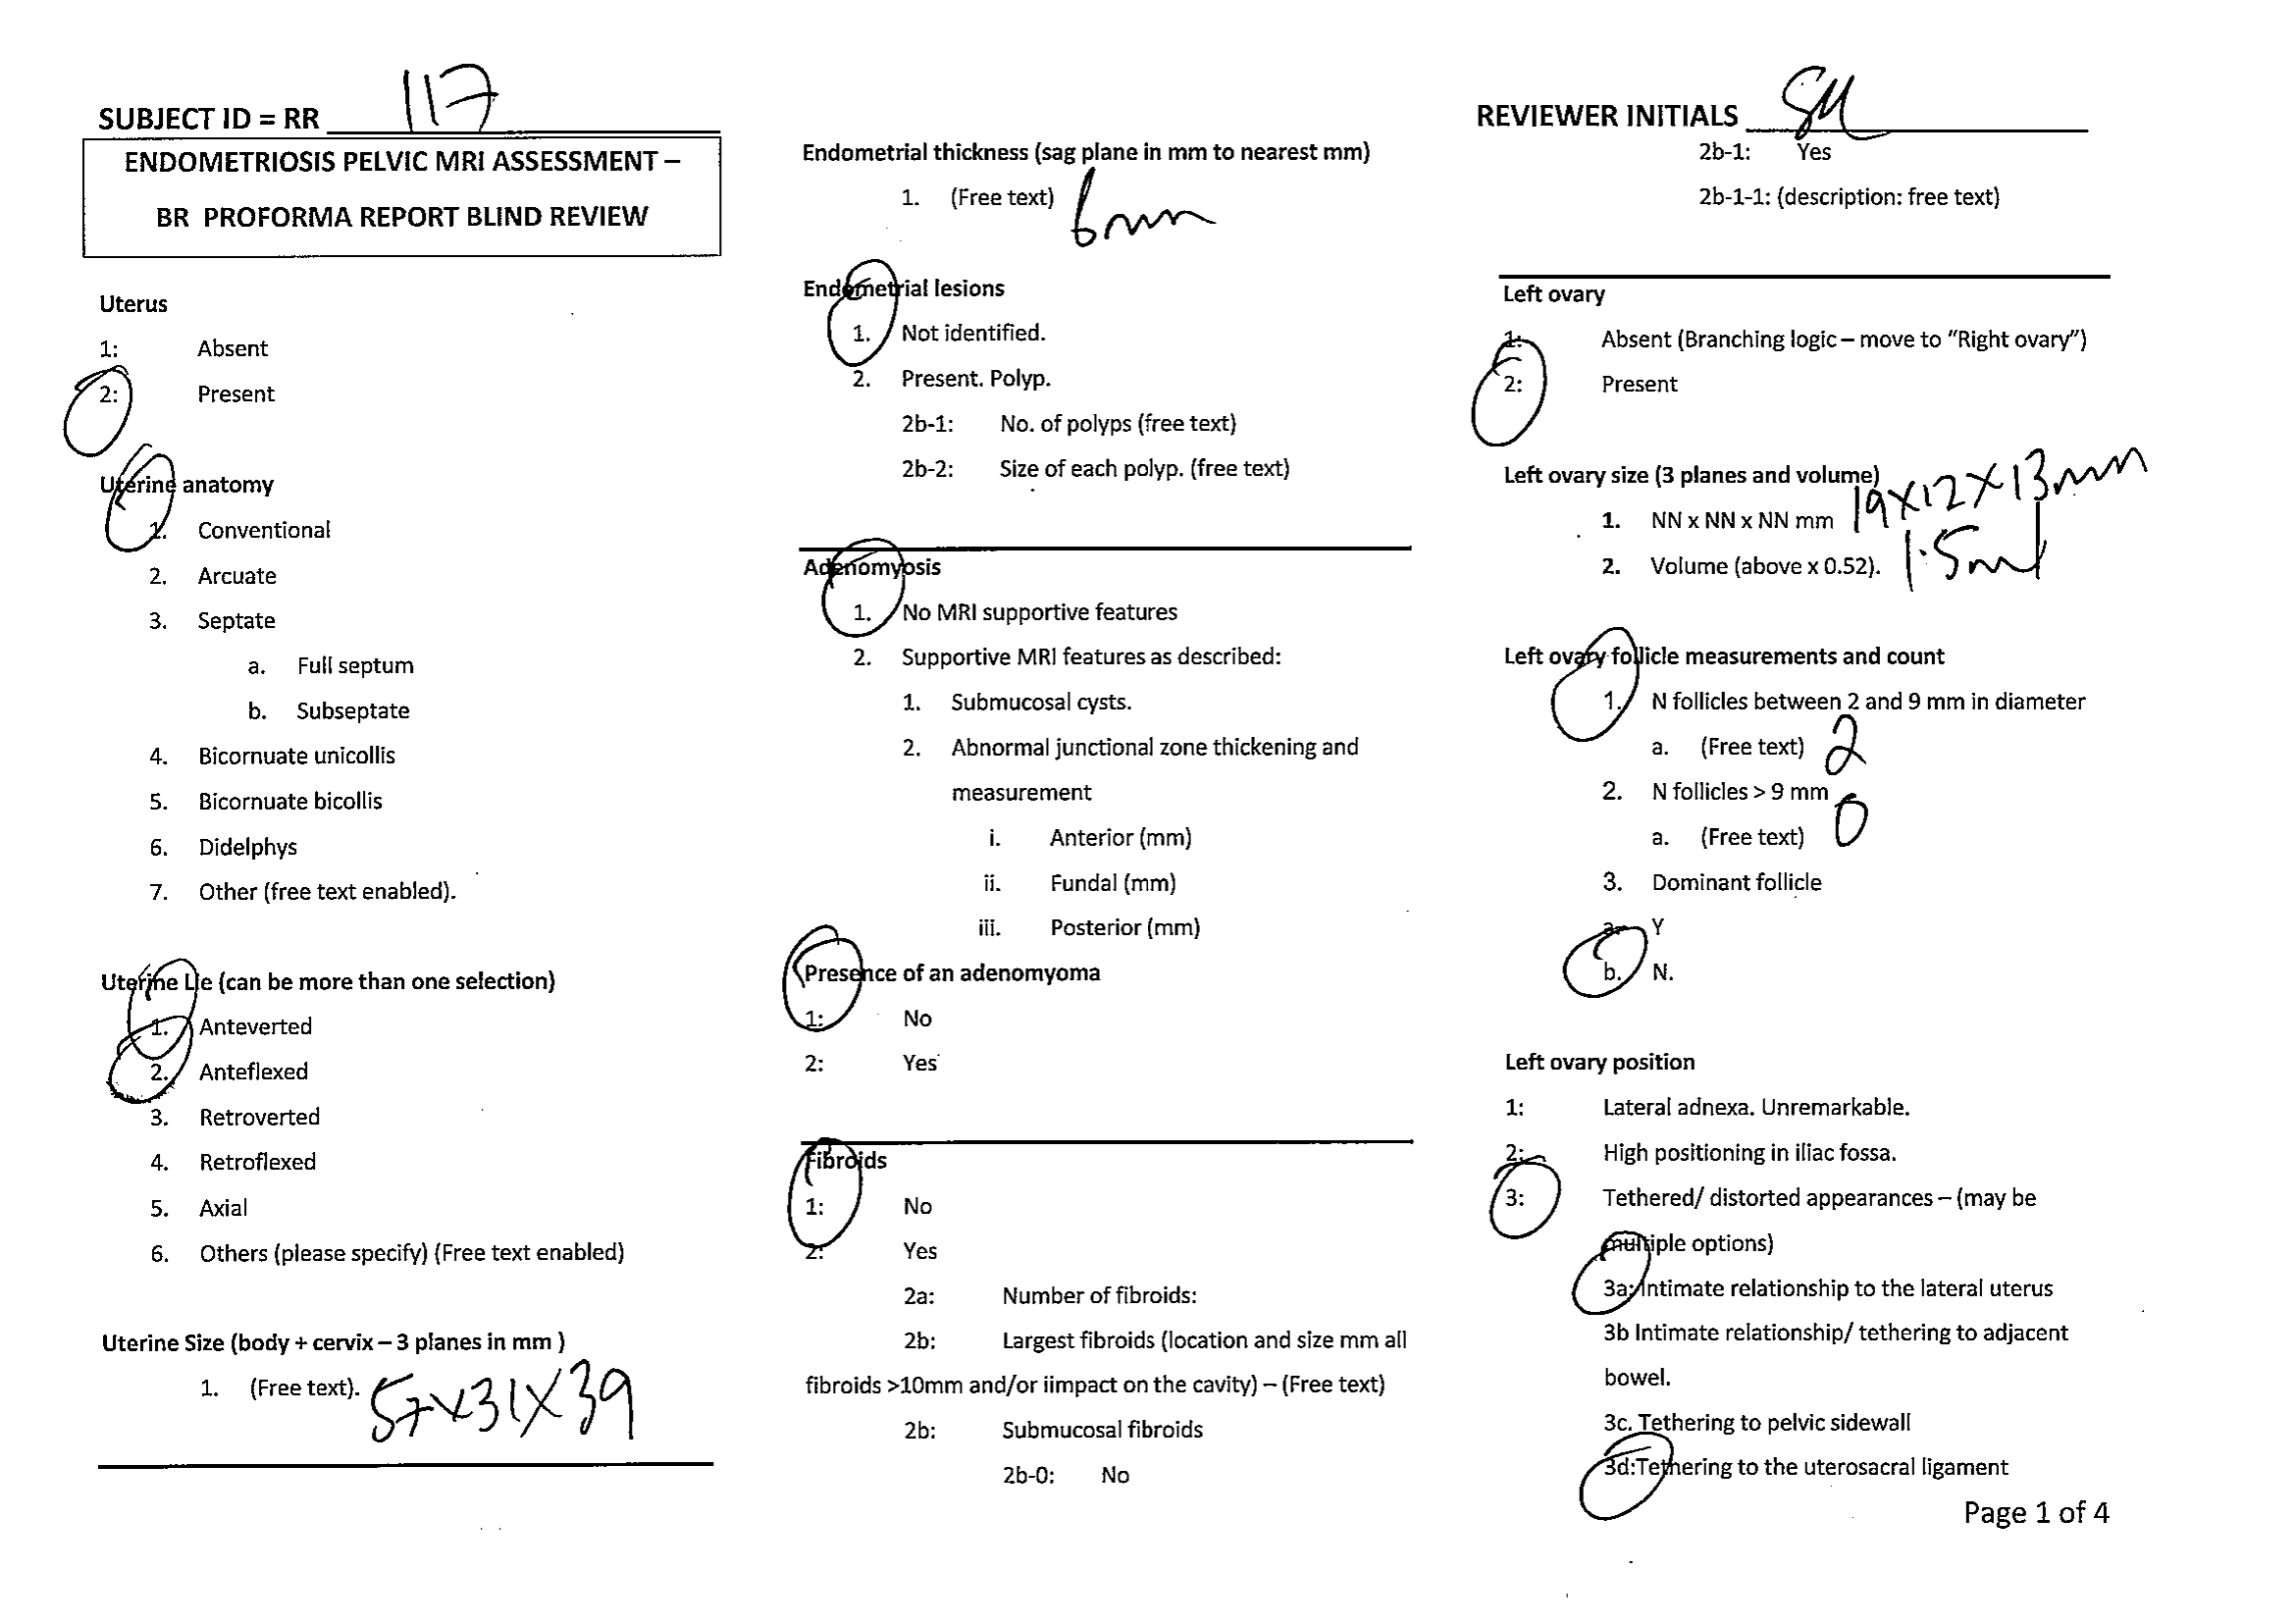 SUBJECT ID = RR 117
ENDOMETRIOSIS PELVIC MRI ASSESSMENT –
BR PROFORMA REPORT BLIND REVIEW
Uterus
1: Absent
2: Present
Uterine anatomy
1. Conventional
2. Arcuate
3. Septate
a. Full septum
b. Subseptate
4. Bicornuate unicollis
5. Bicornuate bicollis
6. Didelphys
7. Other (free text enabled).
Uterine Lie (can be more than one selection)
1. Anteverted
2. Anteflexed
3. Retroverted
4. Retroflexed
5. Axial
6. Others (please specify) (Free text enabled)
Uterine Size (body + cervix – 3 planes in mm )
1. (Free text). 57x31x39
Endometrial thickness (sag plane in mm to nearest mm)
1. (Free text) 6mm
Endometrial lesions
1. Not identified.
2. Present. Polyp.
2b-1: No. of polyps (free text)
2b-2: Size of each polyp. (free text)
Adenomyosis
1. No MRI supportive features
2. Supportive MRI features as described:
1. Submucosal cysts.
2. Abnormal junctional zone thickening and
measurement
i. Anterior (mm)
ii. Fundal (mm)
iii. Posterior (mm)
Presence of an adenomyoma
1: No
2: Yes
Fibroids
1: No
2: Yes
2a: Number of fibroids:
2b: Largest fibroids (location and size mm all
fibroids >10mm and/or iimpact on the cavity) – (Free text)
2b: Submucosal fibroids
2b-0: No
REVIEWER INITIALS SM
2b-1: Yes
2b-1-1: (description: free text)
Left ovary
1: Absent (Branching logic – move to “Right ovary”)
2: Present
Left ovary size (3 planes and volume)
1. NN x NN x NN mm 19x12x13mm
2. Volume (above x 0.52). 1.5ml
Left ovary follicle measurements and count
1. N follicles between 2 and 9 mm in diameter
a. (Free text) 2
2. N follicles > 9 mm
a. (Free text) 0
3. Dominant follicle
a. Y
b. N.
Left ovary position
1: Lateral adnexa. Unremarkable.
2: High positioning in iliac fossa.
3: Tethered/ distorted appearances – (may be
multiple options)
3a: Intimate relationship to the lateral uterus
3b Intimate relationship/ tethering to adjacent
bowel.
3c. Tethering to pelvic sidewall
3d:Tethering to the uterosacral ligament
Page 1 of 4